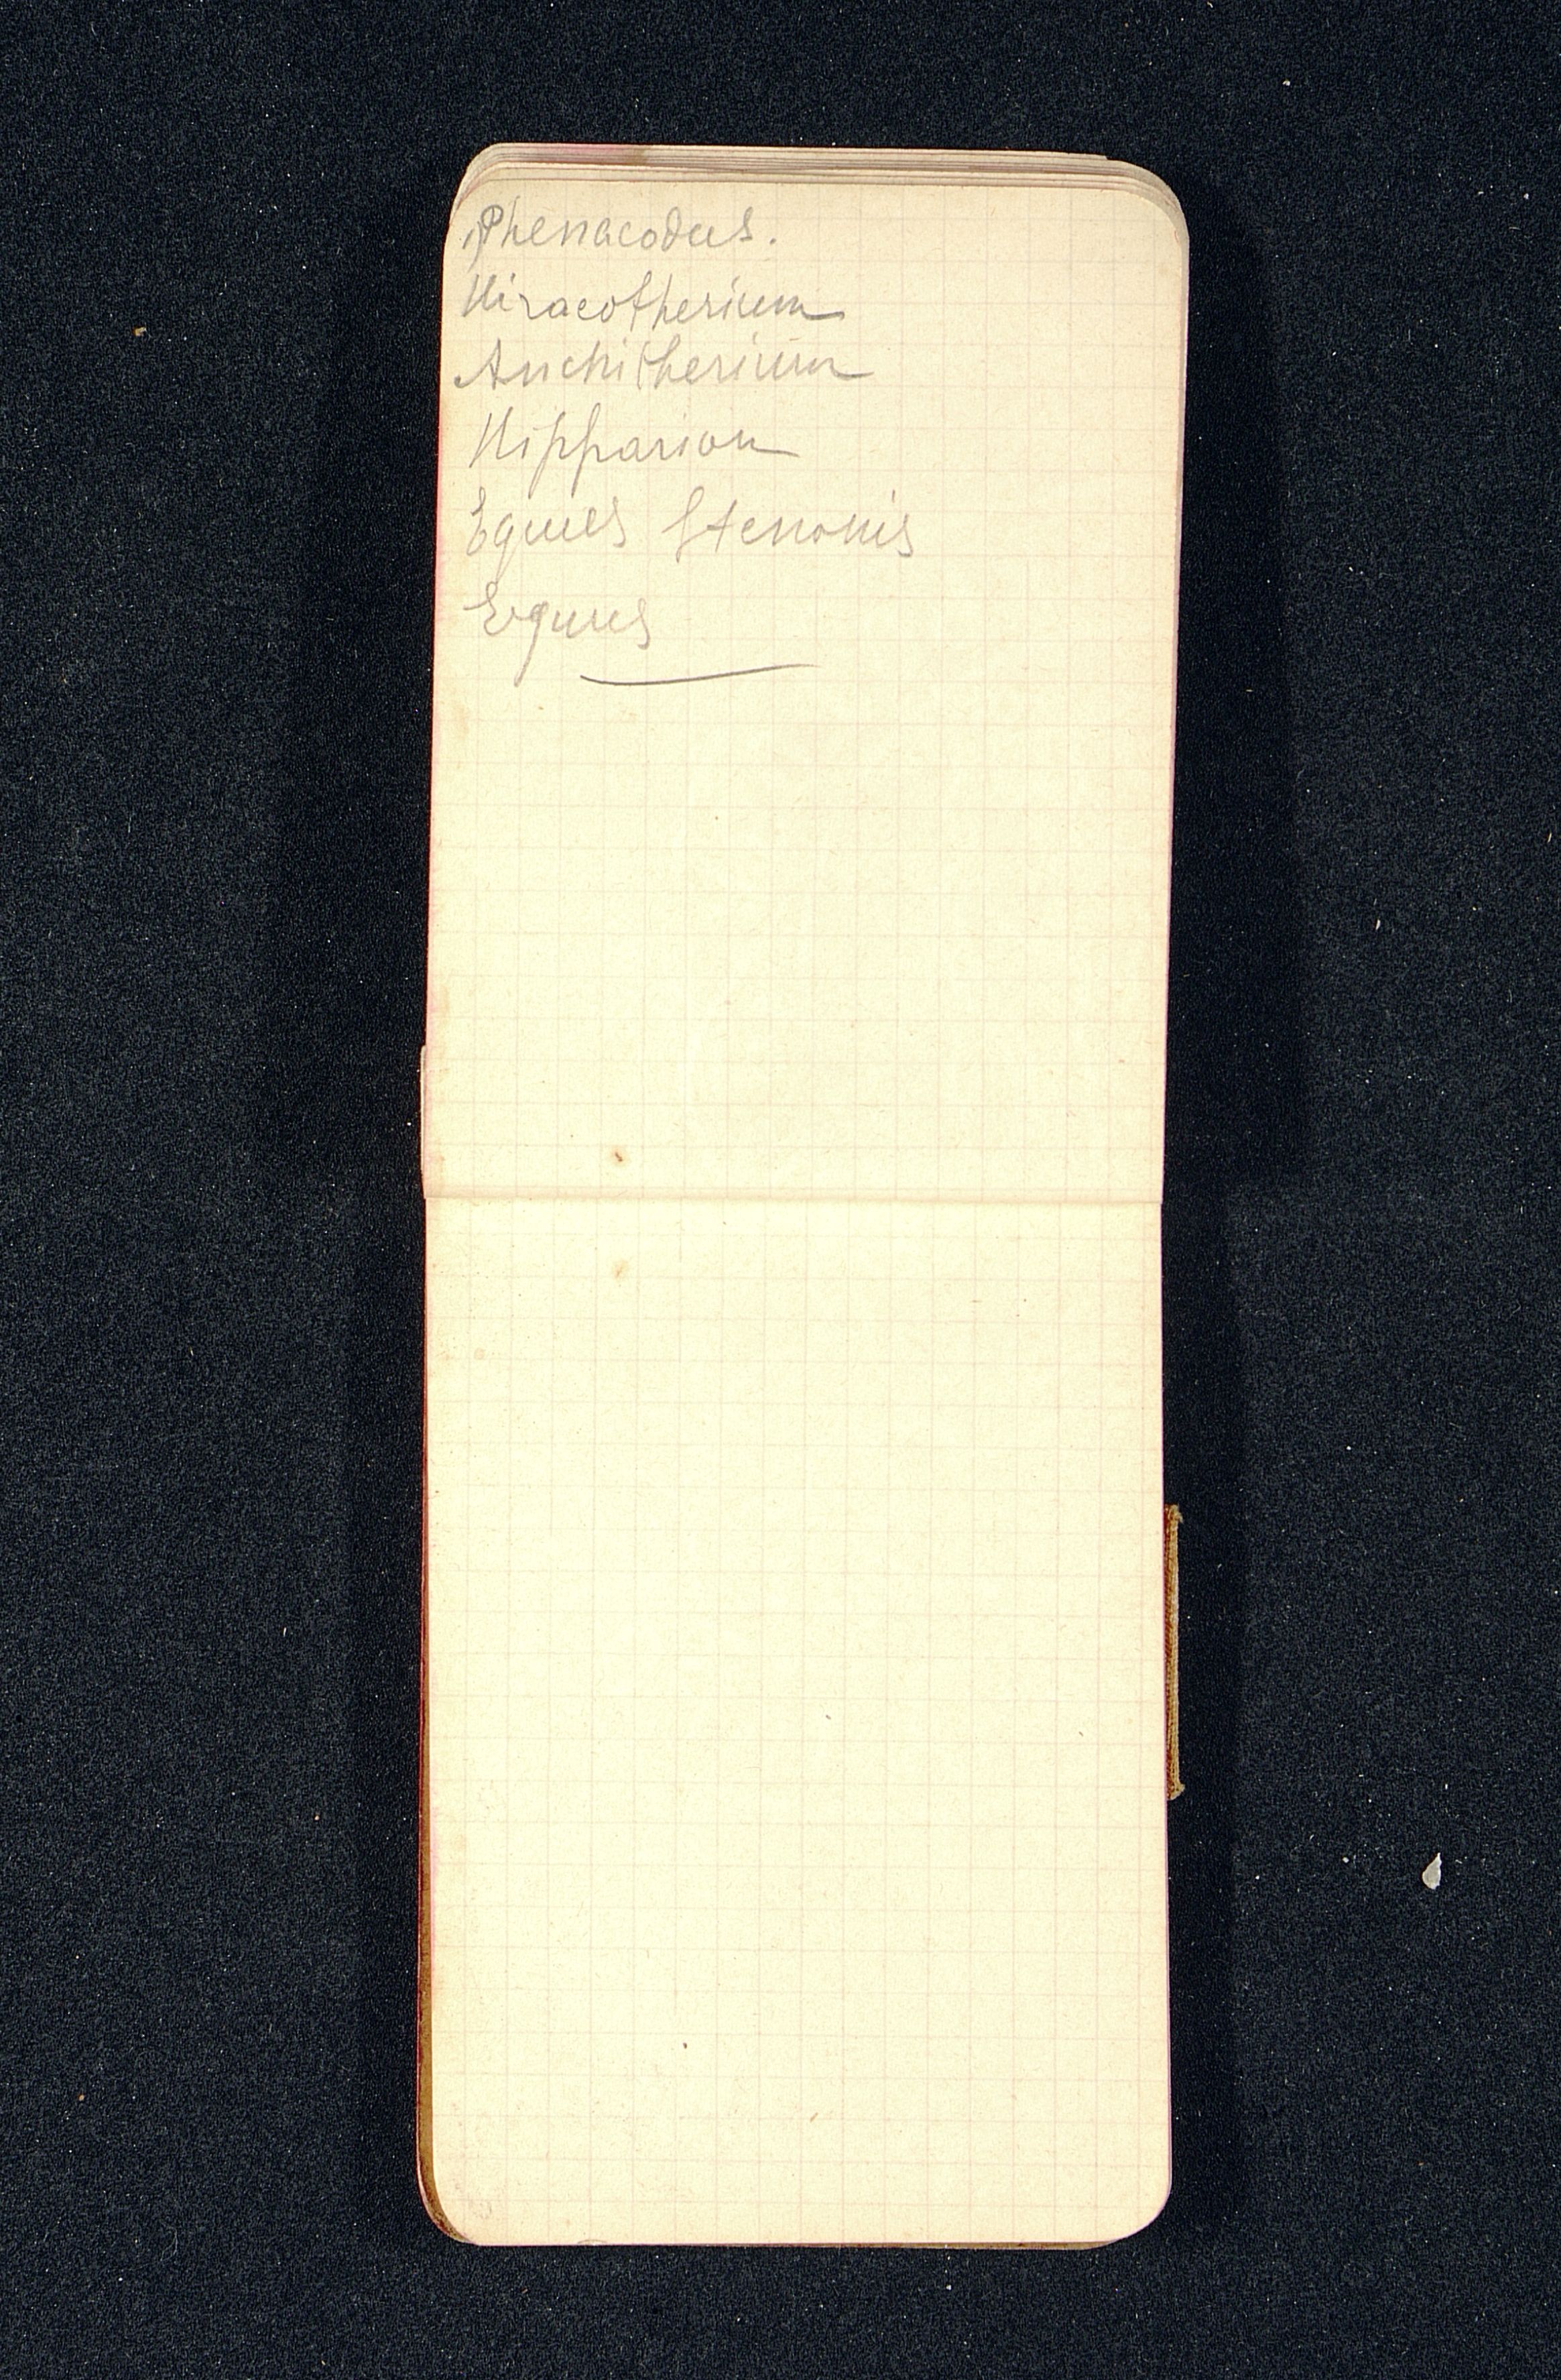 Phenacodus.
Hiracotherium
Anchitherium
Hipparion
Equus Stenonis
Equus